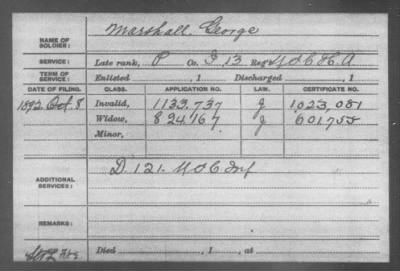 NAME OF SOLDIER: Marshall, George
SERVICE: Late rank, P Co. I, 13 Reg't U S C H. A
TERM OF SERVICE: Enlisted , 1 Discharged , 1
DATE OF FILING. CLASS. APPLICATION NO. LAW. CERTIFICATE NO.
1892 Oct. 8 Invalid, 1133.737 J 1023,081
Widow, 824.767 J 601755
Minor,
ADDITIONAL SERVICES: D. 121. U S C Inf
REMARKS:
Died , 1 , at